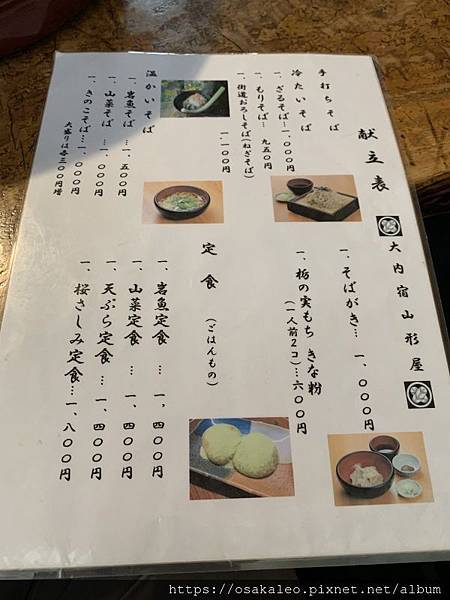 献立表
大内宿山形屋
手打ちそば
冷たいそば
一、ざるそば…一、〇〇〇円
一、もりそば… 九五〇円
一、街道おろしそば(ねぎそば)
一一〇〇円
温かいそば
一、岩魚そば…一、五〇〇円
一、山菜そば…一、〇〇〇円
一、きのこそば…一、〇〇〇円
大盛りは各三〇〇円増
一、そばがき… 一、〇〇〇円
一、栃の実もち きな粉
(一人前2コ)…六〇〇円
定食
(ごはんもの)
一、岩魚定食 … 一、四〇〇円
一、山菜定食 … 一、四〇〇円
一、天ぷら定食 … 一、四〇〇円
一、桜さしみ定食… 一、八〇〇円
https://osakaleo.pixnet.net/album